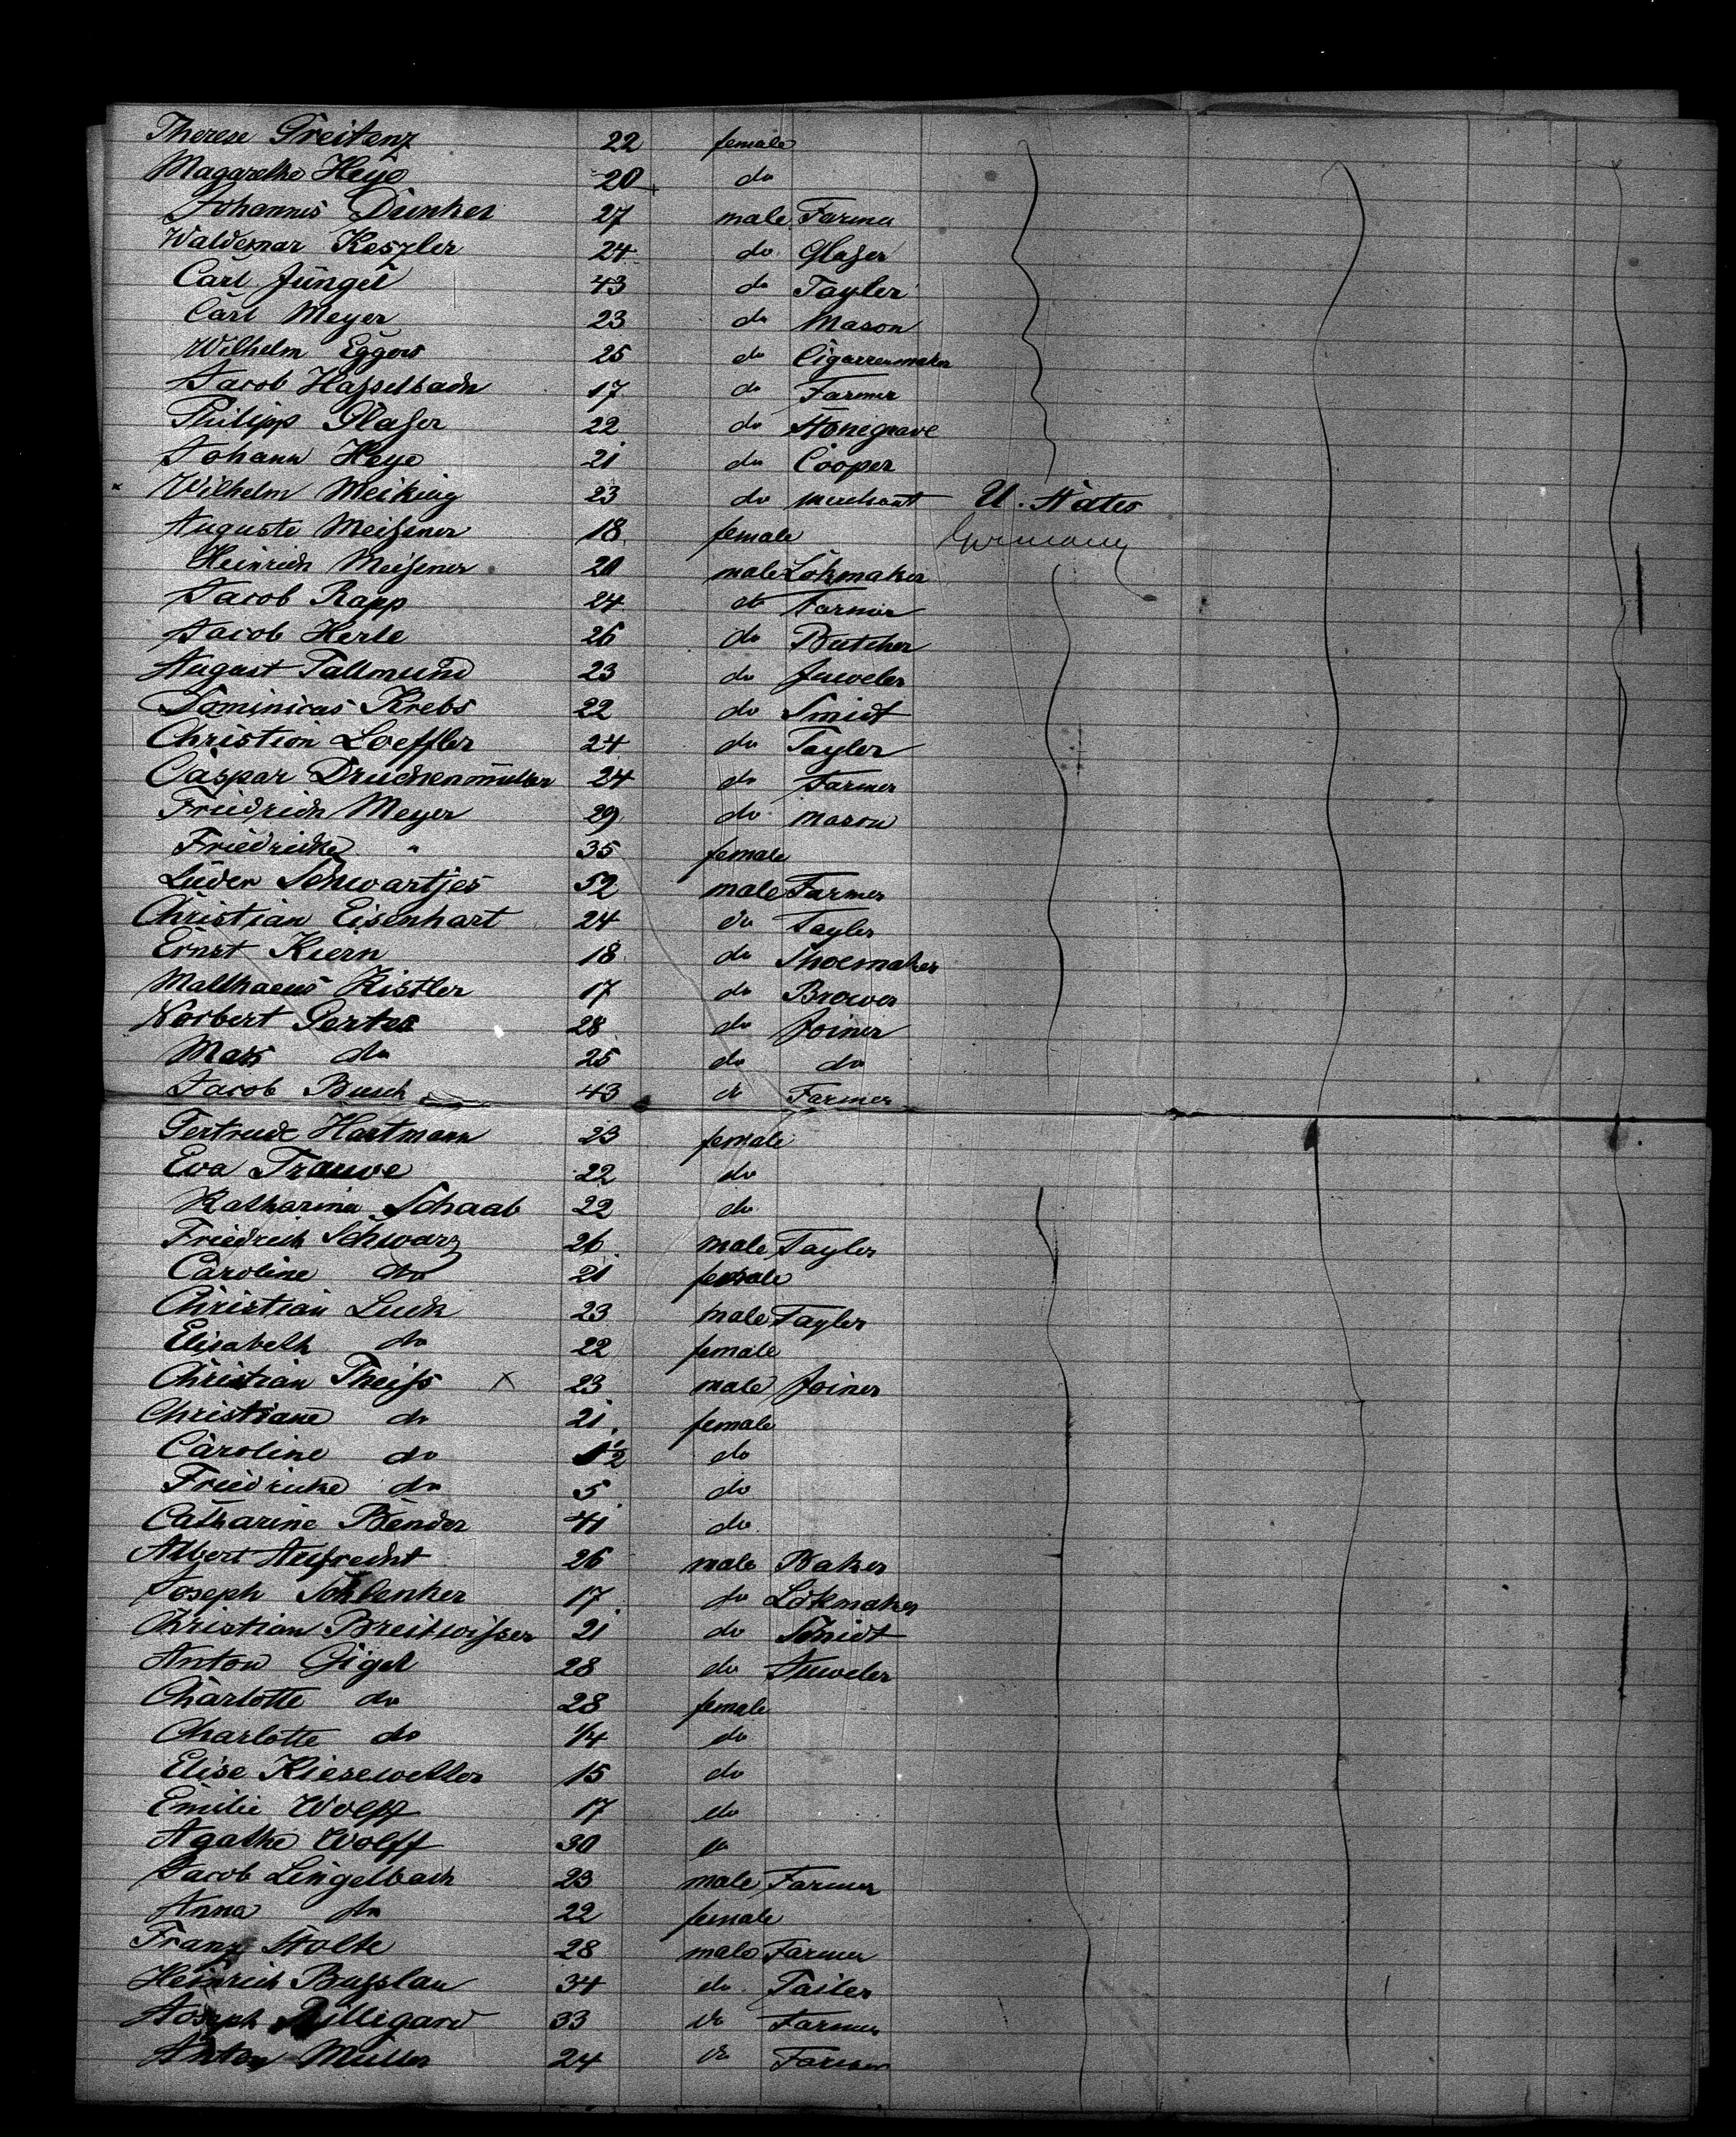 Therese Greitenz 22 female
Magarethe Heye 20 do
Johannes Dunker 27 male Farmer
Waldemar Keszler 24 do Glaser
Carl Jüngel 43 do Tayler
Carl Meyer 23 do Mason
Wilhelm Eggers 25 do Cigarrenmaker
Jacob Hasselbach 17 do Farmer
Philipp Glaser 22 do Stonegrave
Johann Heye 21 do Cooper
Wilhelm Meiking 23 do merchant U. States
Auguste Meißner 18 female Germany
Heinrich Meißner 20 male Lokmaker
Jacob Rapp 24 do Farmer
Jacob Herle 26 do Butcher
August Tallmund 23 do Juweler
Dominicus Krebs 22 do Smidt
Christian Loeffler 24 do Tayler
Caspar Druckenmüller 24 do Farmer
Friedrich Meyer 29 do mason
Friedricke " 35 female
Lüder Schwartjes 52 male Farmer
Christian Eisenhart 24 do Tayler
Ernst Kiern 18 do Shoemaker
Matthaeus Kistler 17 do Brower
Norbert Gertes 28 do Joiner
Max do 25 do do
Jacob Busch 43 do Farmer
Gertrude Hartmann 23 female
Eva Trauve 22 do
Katharina Schaab 22 do
Friedrich Schwarz 26 male Tayler
Caroline do 21 female
Christian Luck 23 male Tayler
Elisabeth do 22 female
Christian Theiss x 23 male Joiner
Christiane do 21 female
Caroline do 1/2 do
Friedricke do 5 do
Catharine Bender 41 do
Albert Aufrecht 26 male Baker
Joseph Schlenker 17 do Lokmaker
Christian Breitwisser 21 do Smidt
Anton Gigel 28 do Juweler
Charlotte do 28 female
Charlotte do 1/4 do
Elise Kiesewetter 15 do
Emilie Wolff 17 do
Agathe Wolff 30 do
Jacob Lingelbach 23 male Farmer
Anna do 22 female
Franz Stolte 28 male Farmer
Heinrich Busslau 34 do Tailer
Joseph Billigard 33 do Farmer
Anton Müller 24 do Farmer